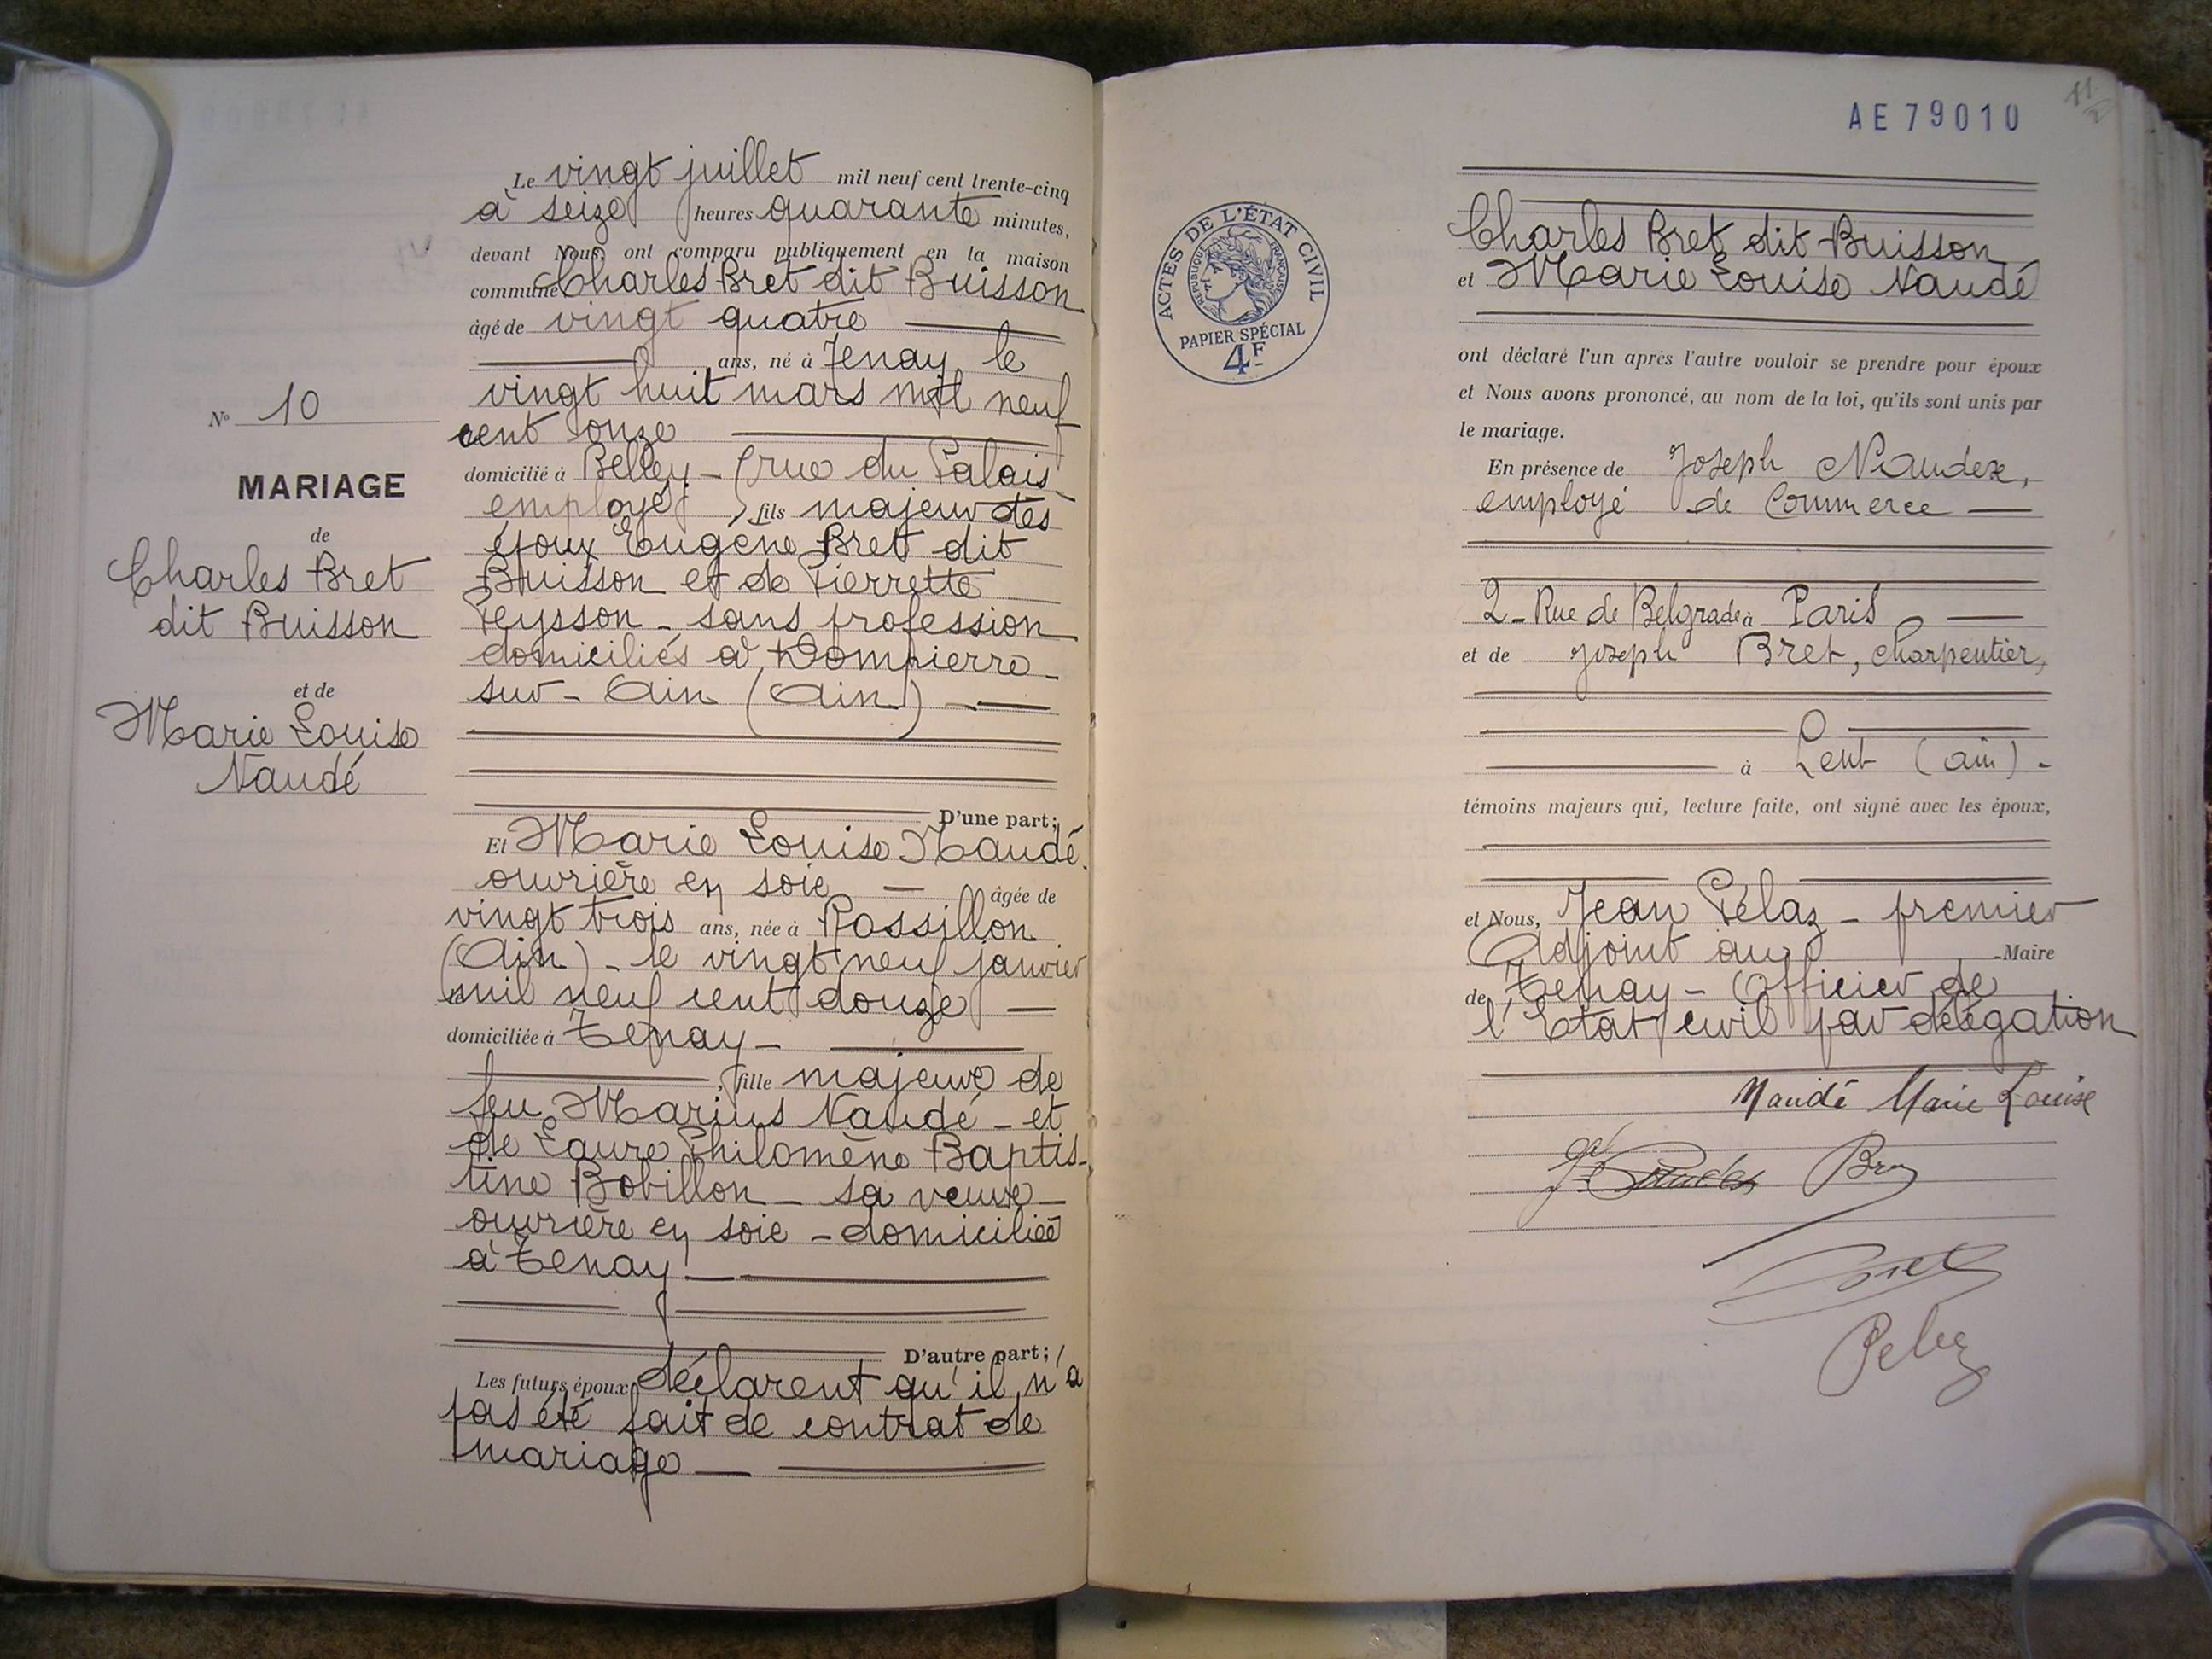 N° 10
MARIAGE
de
Charles Bret
dit Buisson
et de
Marie Louise
Naudé
Le vingt juillet mil neuf cent trente-cinq
à seize heures quarante minutes,
devant Nous, ont comparu publiquement en la maison
commune Charles Bret dit Buisson
âgé de vingt quatre
ans, né à Tenay le
vingt huit mars mil neuf
cent onze
domicilié à Belley - rue du Palais
employé, fils majeur des
époux Eugène Bret dit
Buisson et de Pierrette
Peysson - sans profession
domiciliés à Dompierre -
sur - Ain (Ain)
D'une part;
Et Marie Louise Naudé
ouvrière en soie âgée de
vingt trois ans, née à Rossillon
(Ain) - le vingt neuf janvier
mil neuf cent douze
domiciliée à Tenay -
, fille majeure de
feu Marius Naudé - et
de Laure Philomène Baptis-
tine Bobillon - sa veuve -
ouvrière en soie - domiciliée
à Tenay
D'autre part;
Les futurs époux déclarent qu'il n'a
pas été fait de contrat de
mariage
AE 79010
ACTES DE L'ÉTAT CIVIL
RÉPUBLIQUE FRANÇAISE
PAPIER SPÉCIAL
4F
Charles Bret dit Buisson
et Marie Louise Naudé
ont déclaré l'un après l'autre vouloir se prendre pour époux
et Nous avons prononcé, au nom de la loi, qu'ils sont unis par
le mariage.
En présence de Joseph Naudex,
employé de Commerce
2 - Rue de Belgrade à Paris
et de Joseph Bret, charpentier,
à Lent (ain) -
témoins majeurs qui, lecture faite, ont signé avec les époux,
et Nous, Jean Pélaz - premier
Adjoint au Maire
de Tenay - Officier de
l'Etat civil par délégation
Naudé Marie Louise
Bret
Pelaz